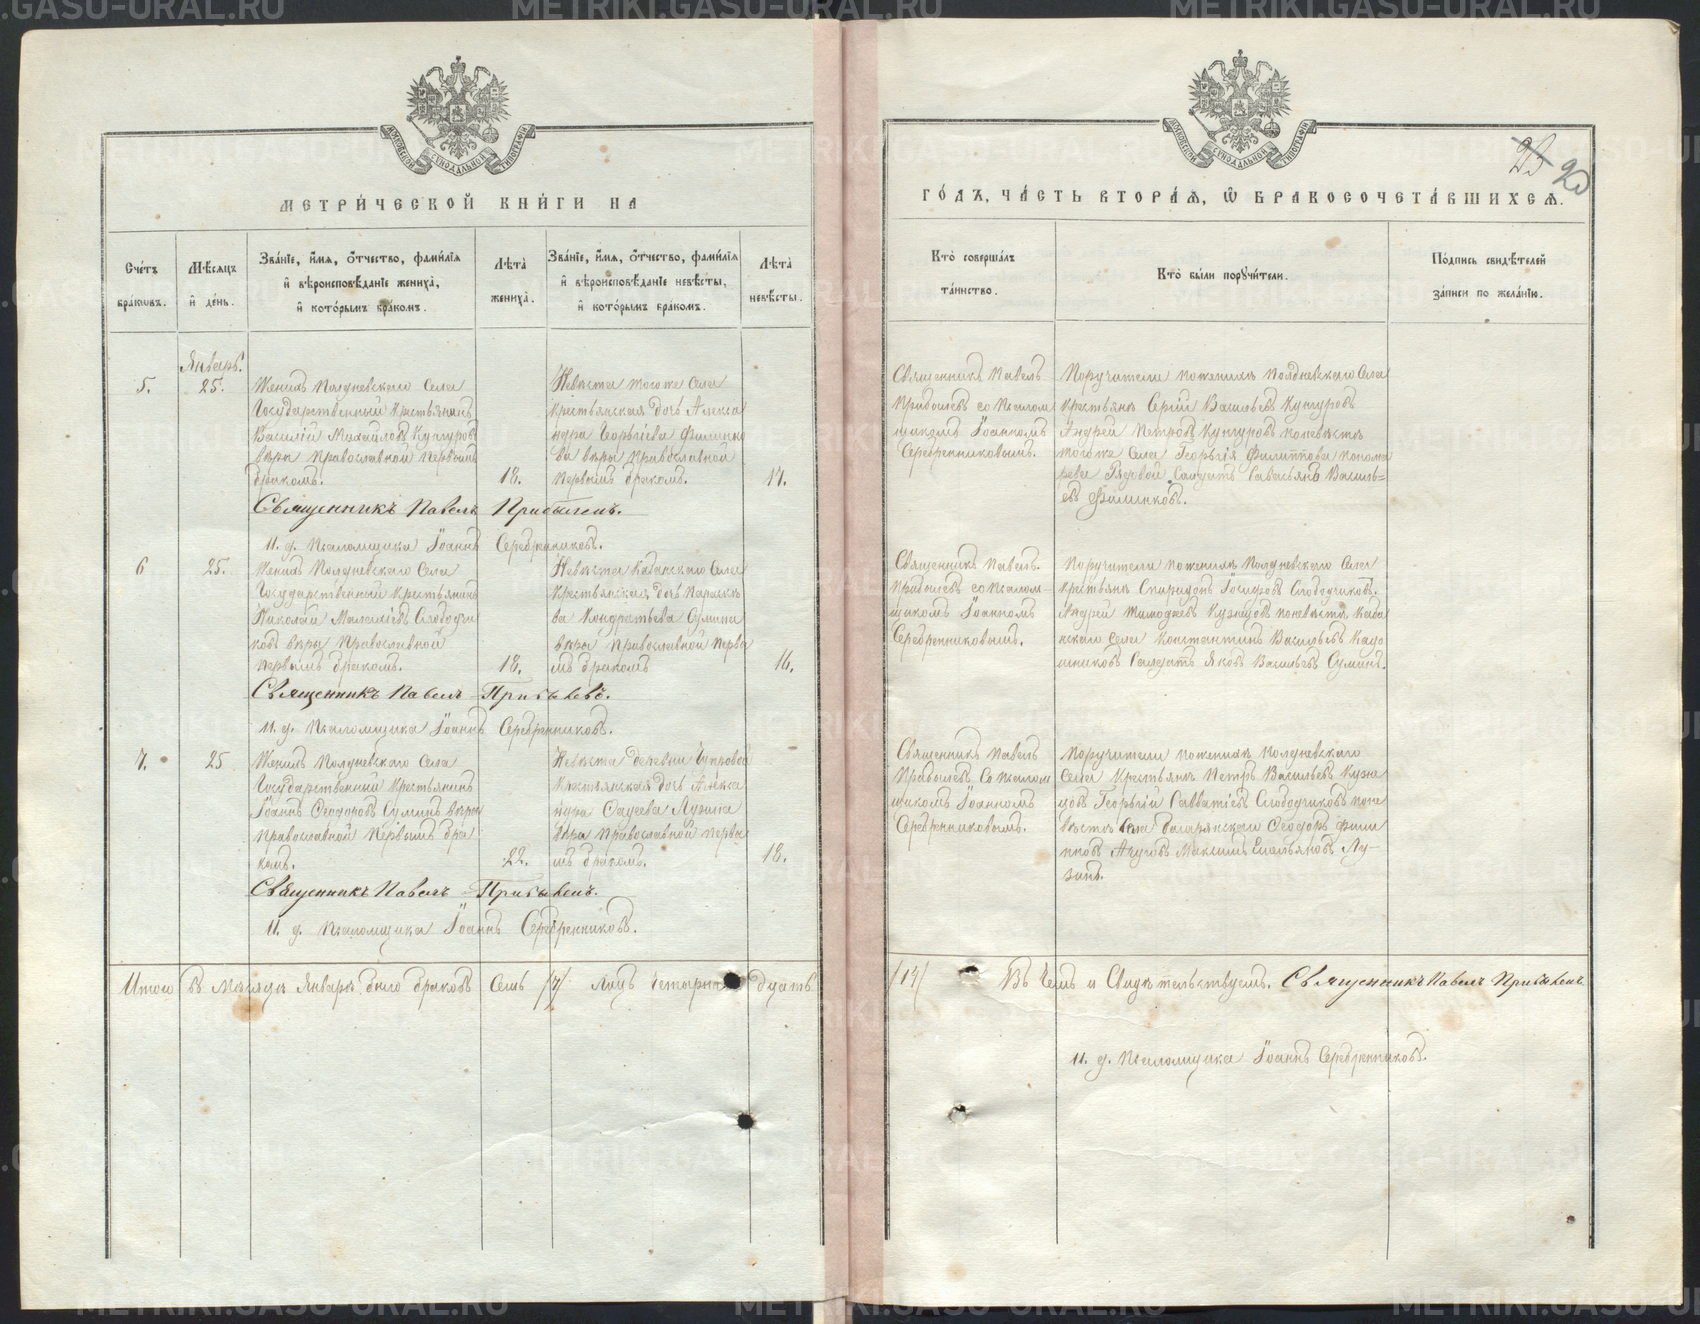 МОСКОВСКОЙ СѴНОДАЛЬНОЙ ТИПОГРАФІИ
МЕТРИ́ЧЕСКОЙ КНИ́ГИ НА
Сче́тъ бракѡвъ.
Мѣ́сяцъ и҆ де́нь.
Зва́нїе, и҆́мѧ, ѻ҆́тчество, фами́лїѧ
и҆ вѣроисповѣ́данїе жениха̀,
и҆ кото́рымъ бра́комъ.
Лѣ́та̀ жениха̀.
Зва́нїе, и҆́мѧ, ѻ҆́тчество, фами́лїѧ
и҆ вѣроисповѣ́данїе невѣ́сты,
и҆ кото́рымъ бра́комъ.
Лѣ́та̀ невѣ́сты.
Январь.
5.
25.
Женихъ Полдневскаго Села
Государственный Крестьянинъ
Василій Михайловъ Кунгуровъ
вѣры Православной первымъ
бракомъ.
18.
Невѣста тогоже Села
крестьянская дочь Алекса
ндра Георгіева Филинко
ва вѣры православной
первымъ бракомъ.
17.
Священникъ Павелъ Прибылевъ.
И. д. Псаломщика Іоаннъ Серебренниковъ.
6
25.
Женихъ Полдневскаго Села
Государственный Крестьянинъ
Николай Слободчи
ковъ вѣры Православной
первымъ бракомъ.
18.
Невѣста Казанскаго Села
Крестьянская дочь Параске
ва Кондратьева Сумина
вѣры Православной первы
мъ бракомъ
16.
Священникъ Павелъ Прибылевъ.
И. д. Псаломщика Іоаннъ Серебренниковъ.
7.
25
Женихъ Полдневскаго Села
Государственный Крестьянинъ
Іоаннъ Ѳеодоровъ Суминъ вѣры
Православной первымъ бра
комъ.
22.
Невѣста деревни
Крестьянская дочь Алекса
ндра Лузина
вѣры Православной первы
мъ бракомъ.
18.
Священникъ Павелъ Прибылевъ.
И. д. Псаломщика Іоаннъ Серебренниковъ.
Итого въ Мѣсяцѣ Январѣ было браковъ Семь /7/ лицъ четырнадцать
МОСКОВСКОЙ СѴНОДАЛЬНОЙ ТИПОГРАФІИ
23 20
ГО́ДЪ, ЧА́СТЬ ВТОРА́Ѧ, Ѽ БРАКОСОЧЕТА́ВШИХСѦ.
Кто̀ соверша́лъ
та́инство.
Кто̀ бы́ли порꙋчи́тели.
По́дпись свидѣ́телей
за́писи по жела́нїю.
Священникъ Павелъ
Прибылевъ со псалом
щикомъ Іоанномъ
Серебренниковымъ.
Поручители поженихѣ Полдневскаго Села
крестьяне Сергій Васильевъ Кунгуровъ
Андрей Петровъ Кунгуровъ поневѣстѣ
тогоже Села Георгія Филиппова
Рядовой Солдатъ Савастьянъ Василь=
евъ Филинковъ.
Священникъ Павелъ.
Прибылевъ со псалом-
щикомъ Іоанномъ
Серебренниковымъ.
Поручители поженихѣ Полдневскаго Села
Крестьяне Спиридонъ Слободчиковъ.
Андрей Тимофеевъ Кузнцовъ поневѣстѣ Каза
нскаго Села Константинъ Васильевъ Кадо
шниковъ Солдатъ Яковъ Васильевъ Суминъ.
Священникъ Павелъ
Прибылевъ со псалом
щикомъ Іоанномъ
Серебренниковымъ.
Поручители поженихѣ Полдневскаго
Села Крестьяне Петръ Васильевъ Кузне
цовъ Георгій Савватіевъ Слободчиковъ поне
вѣстѣ Села Ѳеодоръ Фили
пповъ Максимъ Емельяновъ Лу-
зинъ.
/14/ Въ Чемъ и Свидѣтельствуемъ. Священникъ Павелъ Прибылевъ
И. д. Псаломщика Іоаннъ Серебренниковъ.
METRIKI.GASU-URAL.RU